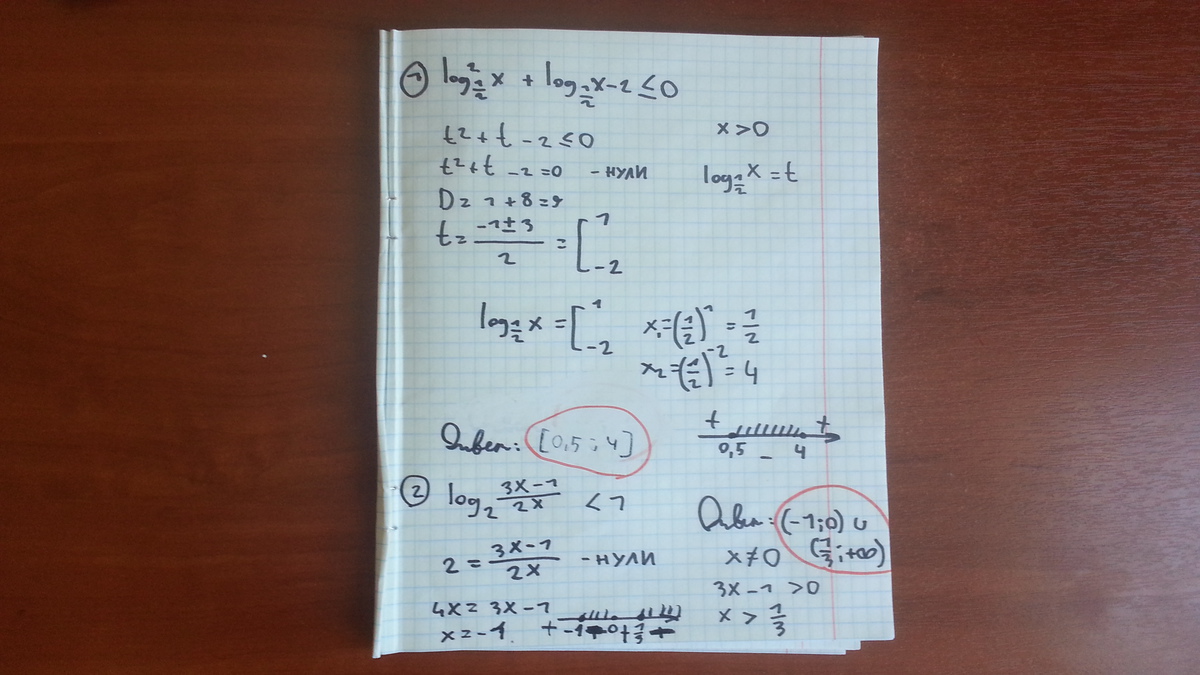 ① log²_{1/2} x + log_{1/2} x - 2 ≤ 0
t² + t - 2 ≤ 0
x > 0
t² + t - 2 = 0 - нули
log_{1/2} x = t
D = 1 + 8 = 9
t = (-1 ± 3)/2 = [1; -2
log_{1/2} x = [1; -2
x₁ = (1/2)^1 = 1/2
x₂ = (1/2)^{-2} = 4
+ +
0,5 - 4
Ответ: [0,5; 4]
② log₂ (3x-1)/(2x) < 1
Ответ: (-1; 0) ∪
(1/3; +∞)
2 = (3x-1)/(2x) - нули
x ≠ 0
4x = 3x - 1
3x - 1 > 0
x = -1
+ -1 - 0 + 1/3 -
x > 1/3